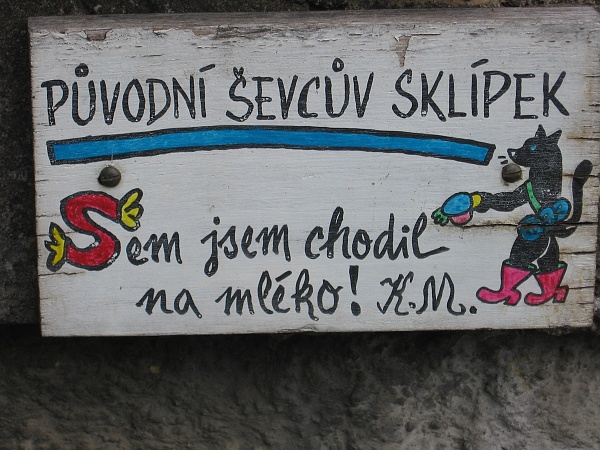 PŮVODNÍ ŠEVCŮV SKLÍPEK
Sem jsem chodil
na mléko! K.M.